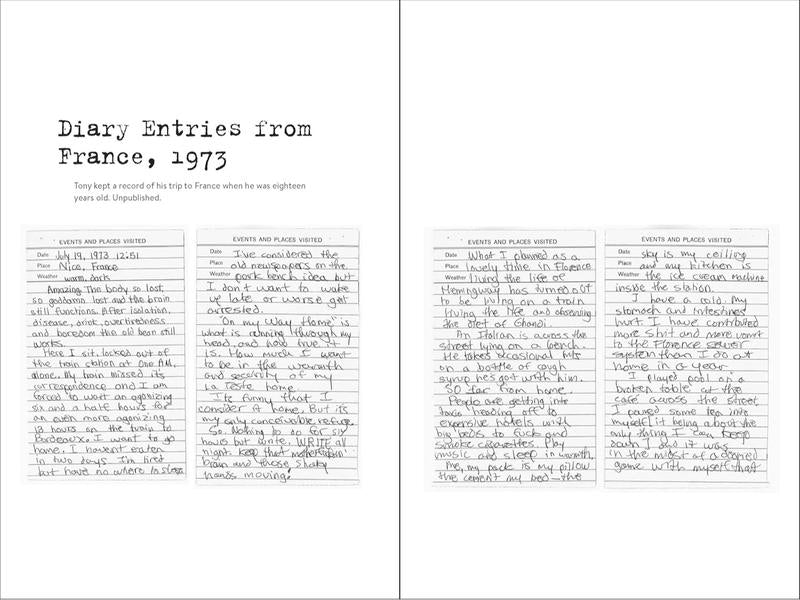 Diary Entries from
France, 1973
Tony kept a record of his trip to France when he was eighteen
years old. Unpublished.
EVENTS AND PLACES VISITED
Date July 19, 1973 12:51
Place Nice, France
Weather warm, dark
Amazing. The body so lost,
so goddamn lost and the brain
still functions. After isolation,
disease, drink, overtiredness
and boredom the old bean still
works.
Here I sit, locked out of
the train station at one AM,
alone. My train missed its
correspondence and I am
forced to wait an agonizing
six and a half hours for
an even more agonizing
13 hours on the train to
Bordeaux. I want to go
home. I haven't eaten
in two days I'm tired
but have no where to sleep
EVENTS AND PLACES VISITED
Date I've considered the
Place old newspapers on the
Weather park bench idea but
I don't want to wake
up late or worse get
arrested.
"On my Way Home" is
what is running through my
head, and how true it
is. How much I want
to be in the warmth
and security of my
La Teste home.
Its funny that I
consider it home. But its
my only conceivable refuge.
So. Nothing to do for six
hours but write. WRITE all
night keep that
brain and those shaky
hands moving!
EVENTS AND PLACES VISITED
Date What I planned as a
Place lovely time in Florence
Weather living the life of
Hemingway has turned out
to be living on a train
living the life and observing
the diet of Ghandi.
An Italian is across the
street lying on a bench.
He takes occasional hits
on a bottle of cough
syrup he's got with him.
So far from home.
People are getting into
taxis heading off to
expensive hotels with
big beds to fuck and
smoke cigarettes. Play
music and sleep in warmth.
Me, my pack is my pillow
the cement my bed—the
EVENTS AND PLACES VISITED
Date sky is my ceiling
Place and my kitchen is
Weather the ice cream machine
inside the station.
I have a cold. My
stomach and intestines
hurt I have contributed
more shit and more vomit
to the Florence sewer
system than I do at
home in a year.
I played pool on a
broken table at the
café across the street.
I poured some tea into
myself it being about the
only thing I can keep
down and it was
in the midst of a
game with myself that